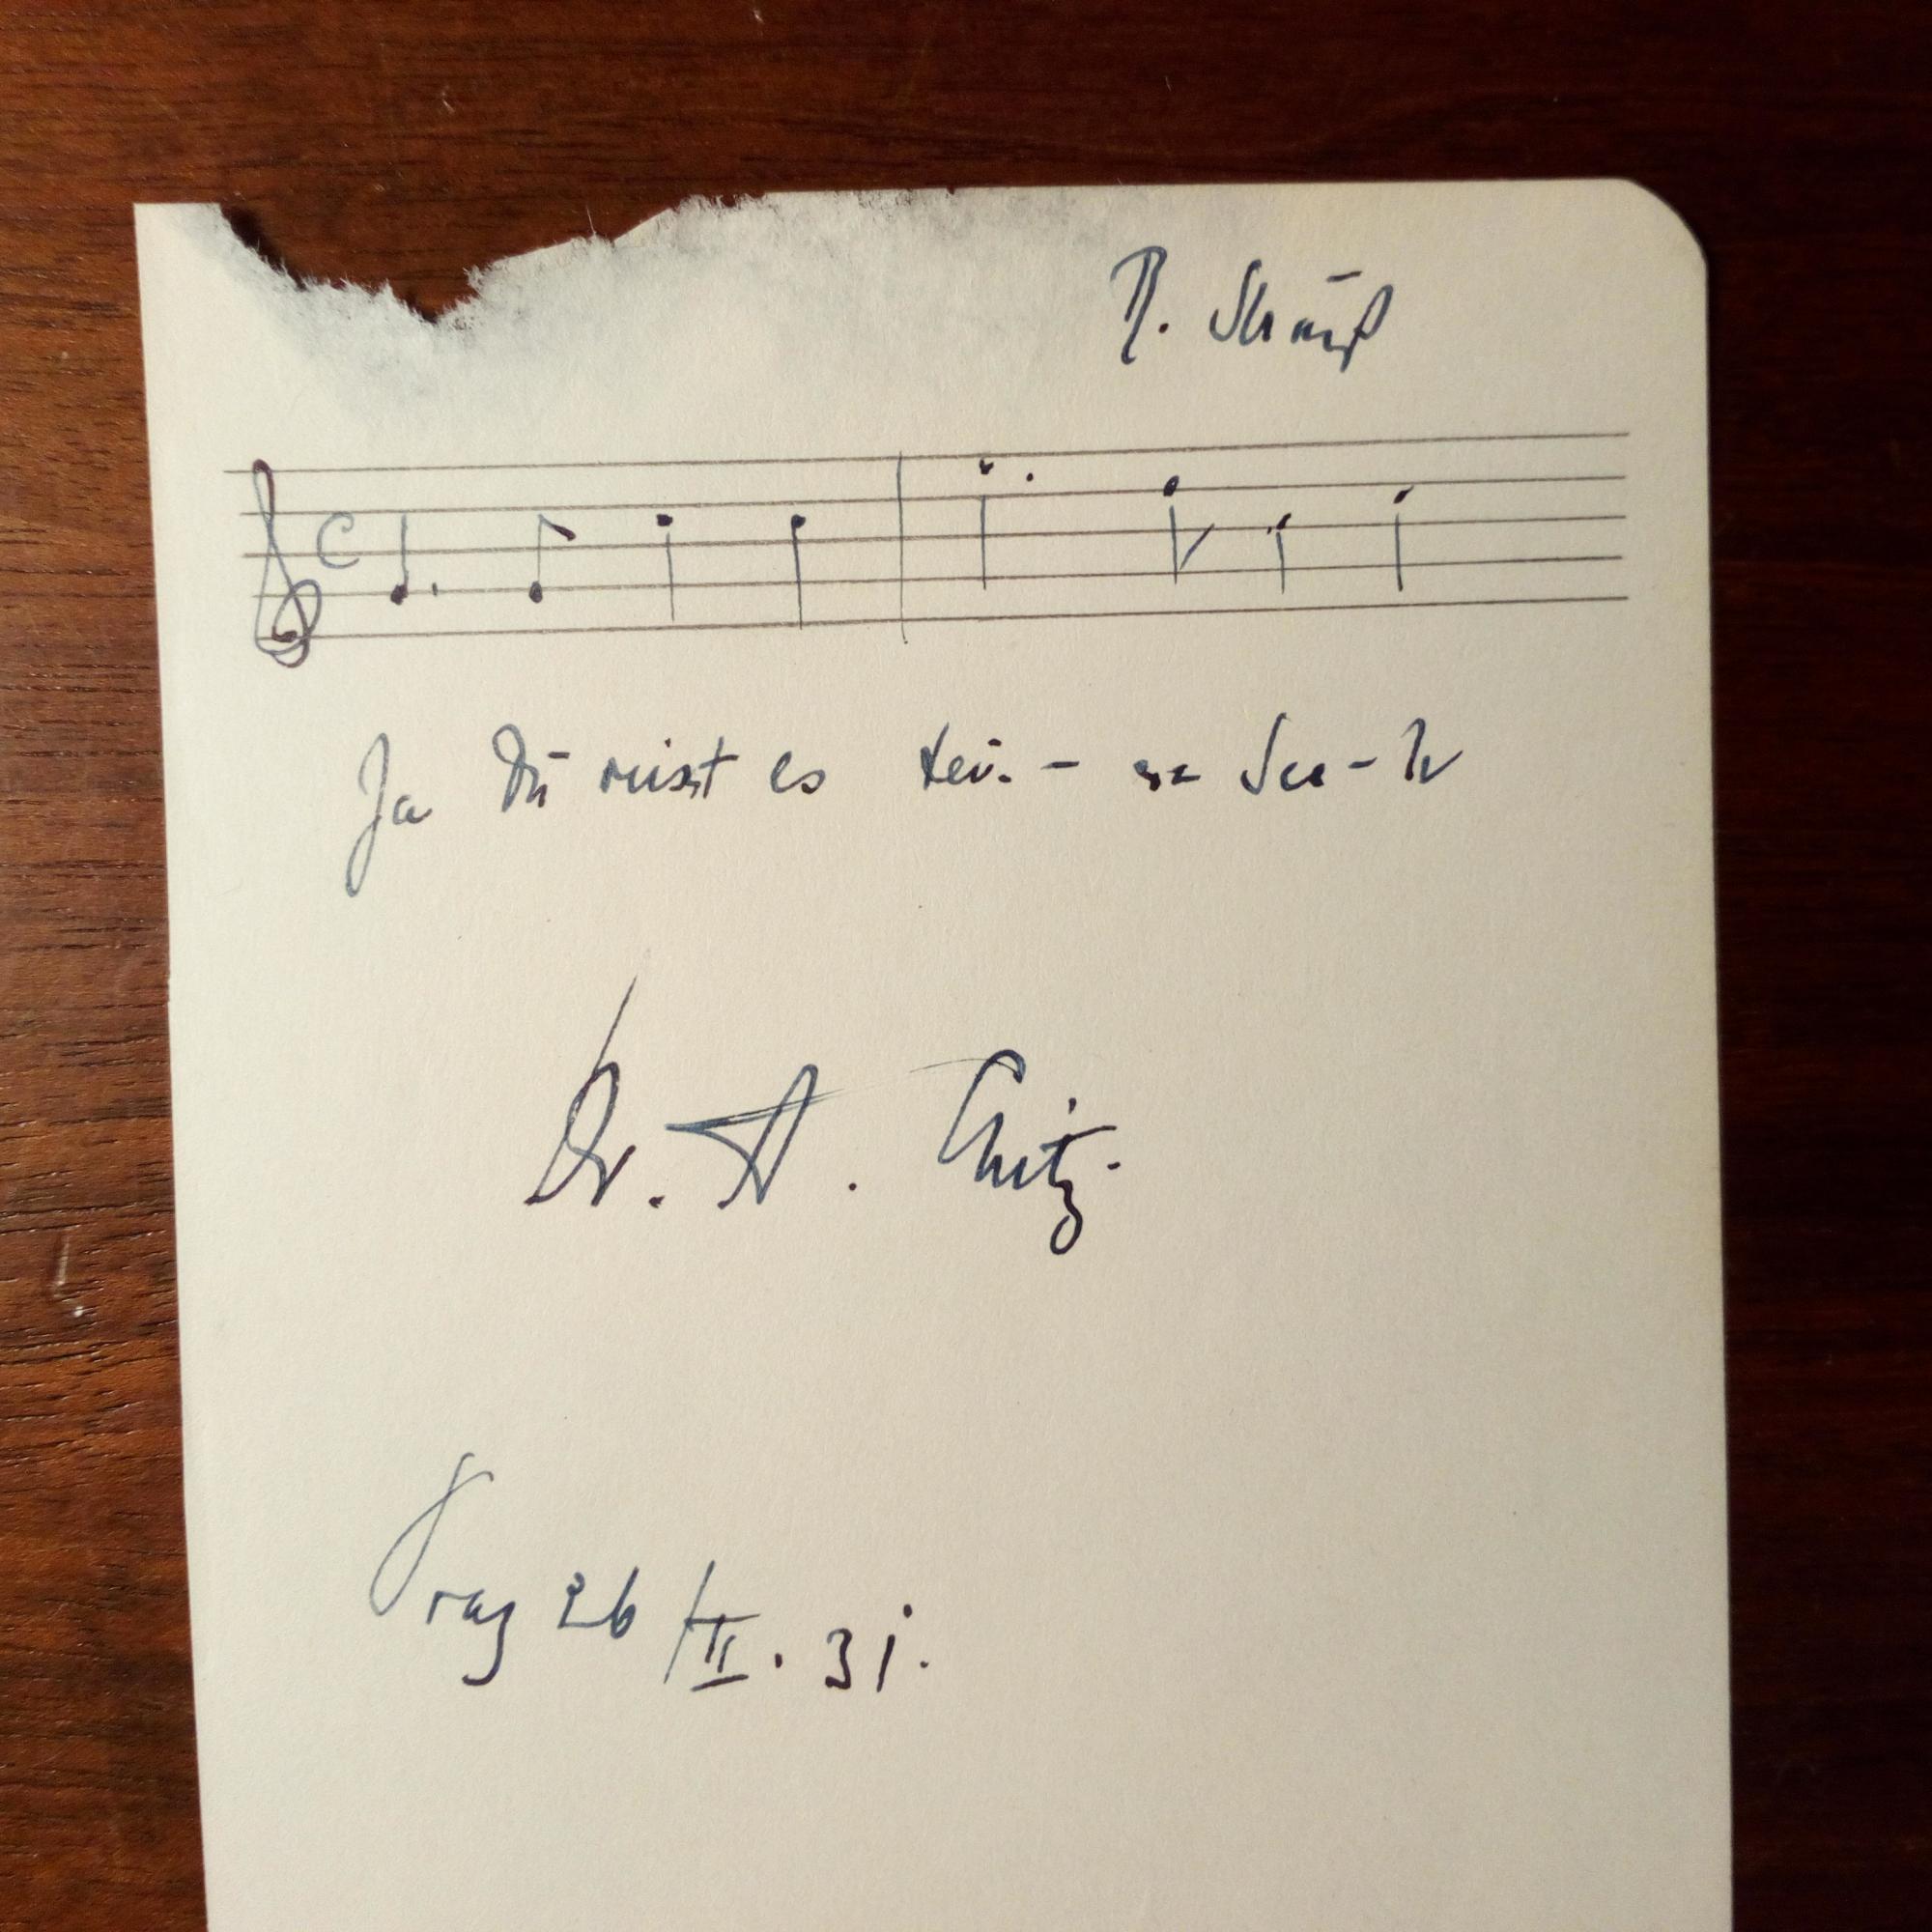 R. Strauß
Ja Du weisst es teu- - re See - le
Dr. A. Chitz.
Prag 26/II. 31.